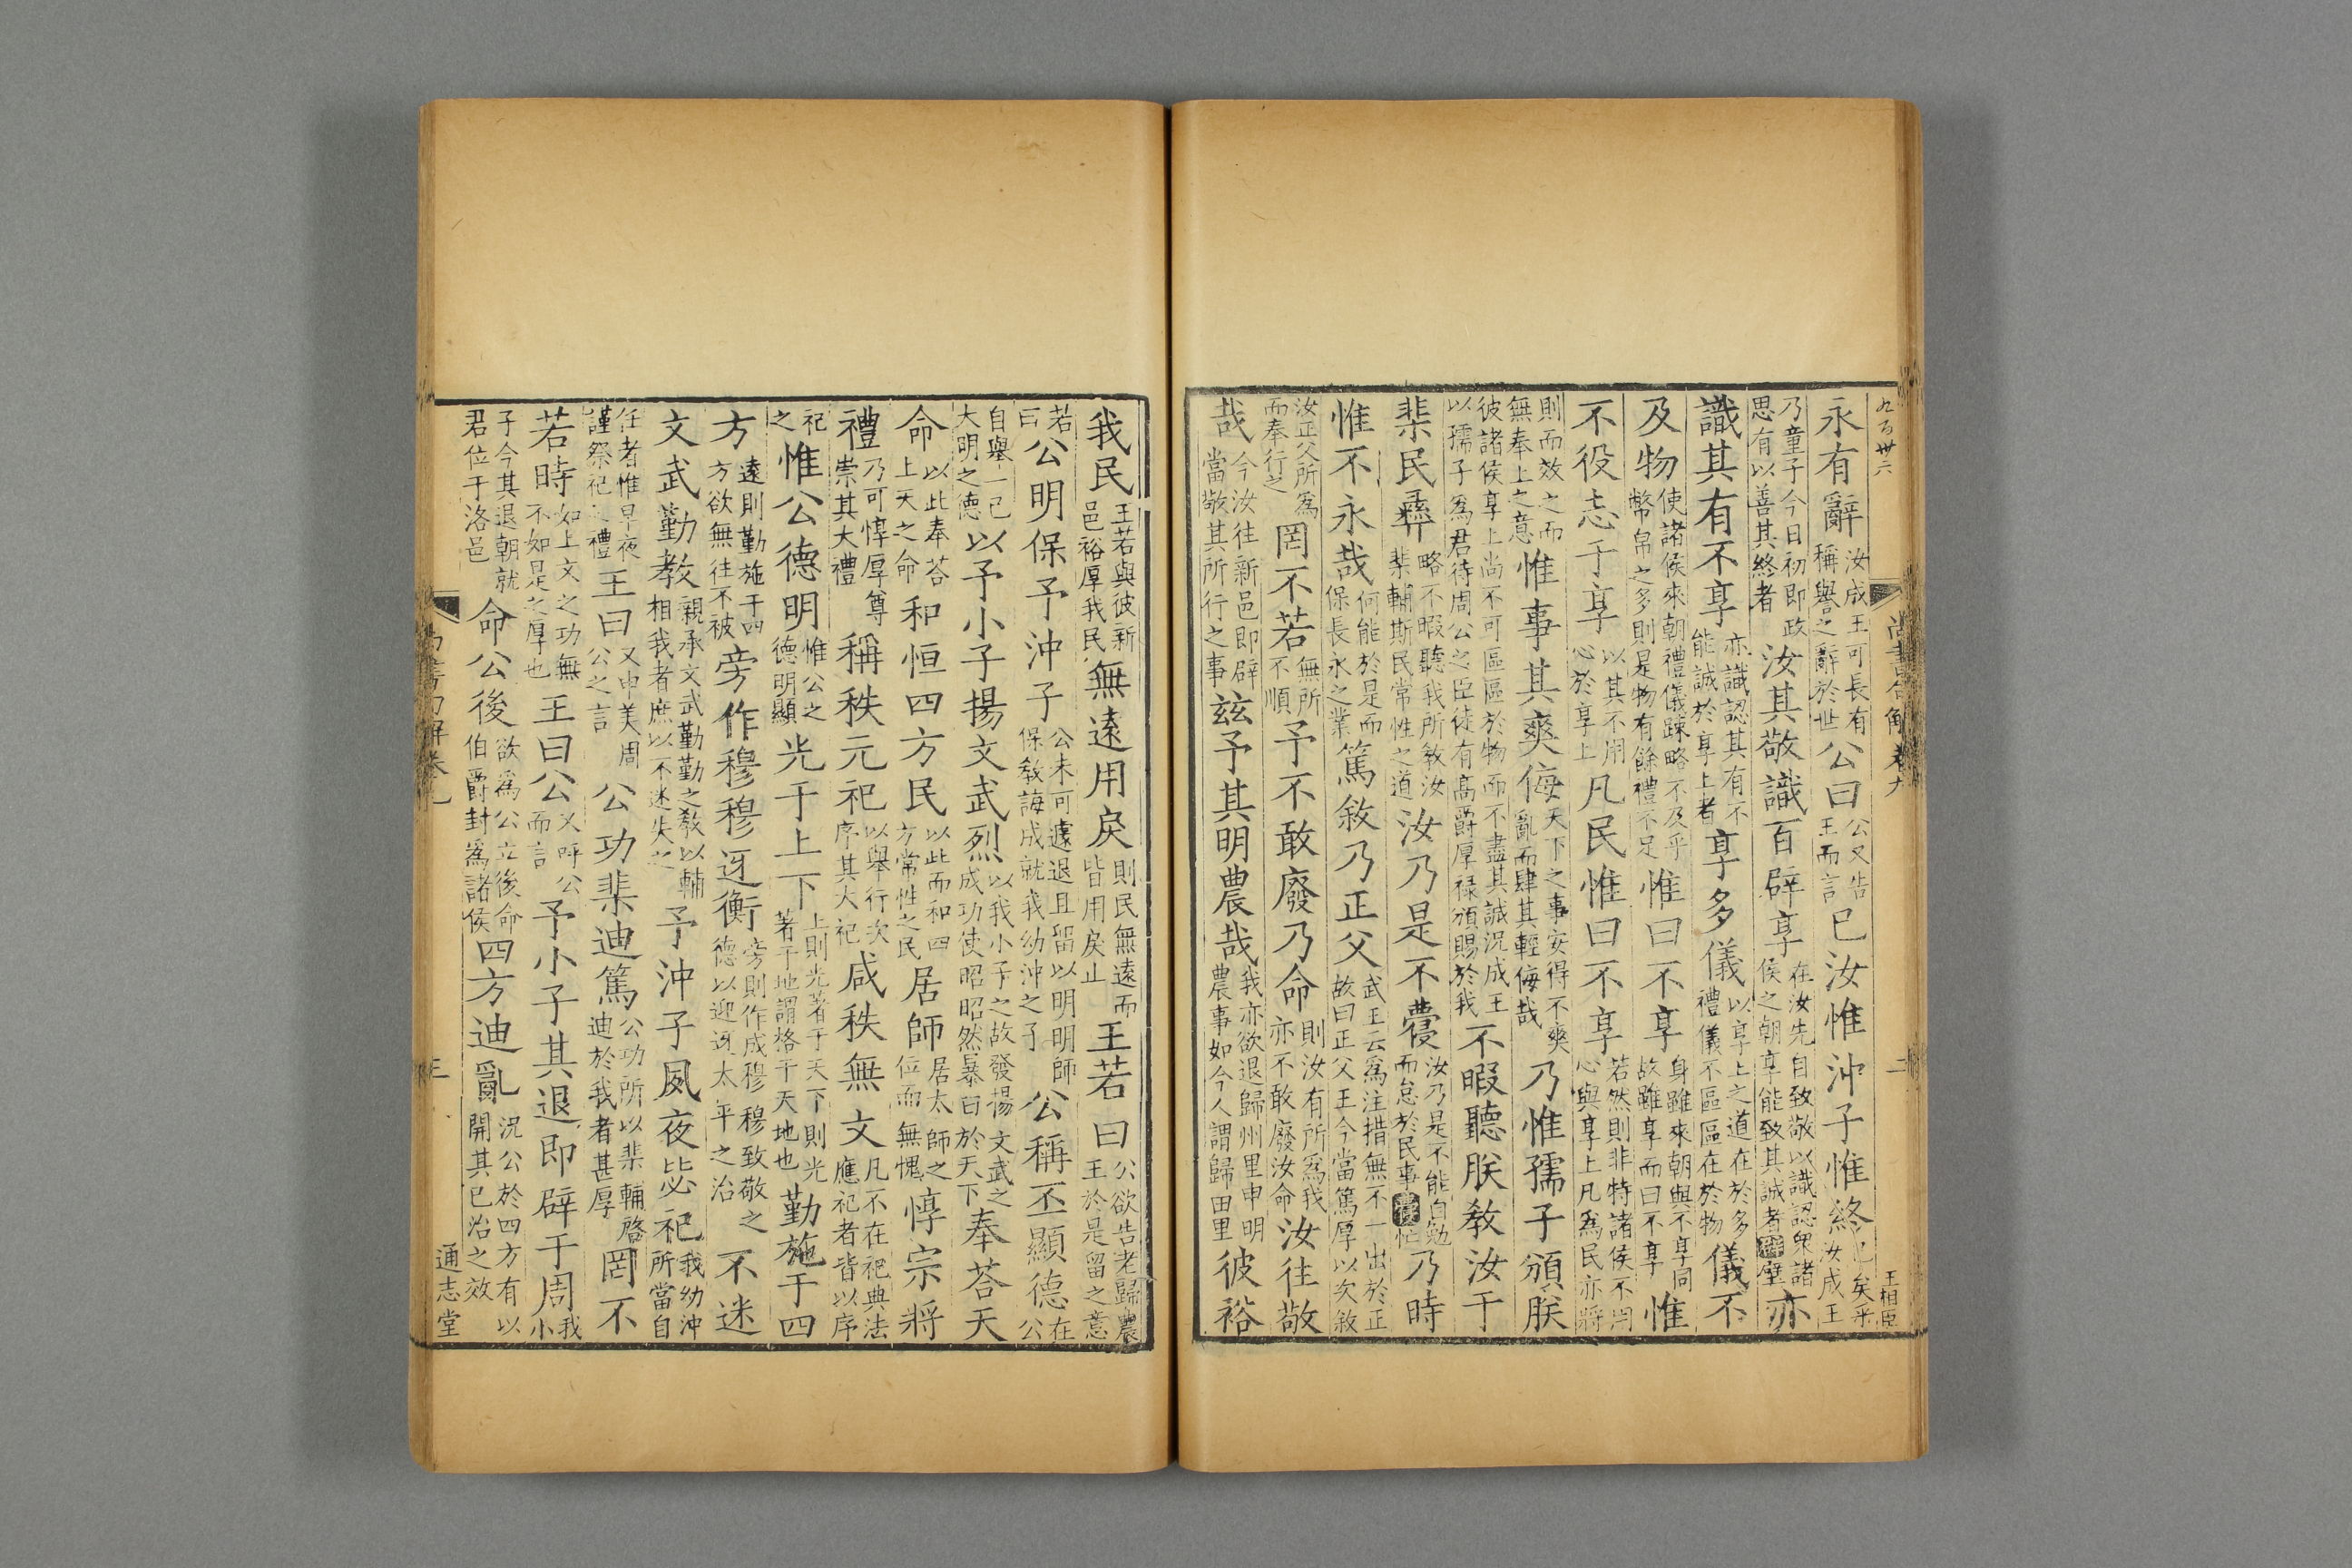 永有辭汝成王可長有稱譽之辭於世公曰公又告王而言已汝惟沖子惟終已矣乎汝成王
乃童子今日初即政思有以善其終者汝其敬識百辟享在汝先自致敬以識認衆諸侯之朝享能致其誠者辟璧亦
識其有不享亦識認其有不能誠於享上者享多儀以享上之道在於多禮儀不區區在於物儀不
及物使諸侯來朝禮儀踈略不及乎幣帛之多則是物有餘禮不足惟曰不享身雖來朝與不享同故雖享而曰不享惟
不役志于享以其不用心於享上凡民惟曰不享若然則非特諸侯不用心與享上凡爲民亦將
則而效之而無奉上之意惟事其爽侮天下之事安得不爽亂而肆其輕侮哉乃惟孺子頒朕
彼諸侯享上尚不可區區於物而不盡其誠況成王以孺子爲君待周公之臣徒有高爵厚祿頒賜於我不暇聽朕敎汝于
棐民彝略不暇聽我所敎汝棐輔斯民常性之道汝乃是不蘉汝乃是不能自勉而怠於民事乃時
惟不永哉何能於是而保長永之業篤敘乃正父武王云爲注措無不一出於正故曰正父王今當篤厚以次敘
汝正父所爲而奉行之罔不若無所不順予不敢廢乃命則汝有所爲我亦不敢廢汝命汝往敬
哉今汝往新邑即辟當敬其所行之事茲予其明農哉我亦欲退歸州里申明農事如今人謂歸田里彼裕
王相臣
我民王若與彼新邑裕厚我民無遠用戾則民無遠而皆用戾止王若曰公欲告老歸農王於是留之意
若曰公明保予沖子公未可遽退且留以明明師保敎誨成就我幼沖之子公稱丕顯德在公
自舉一己大明之德以予小子揚文武烈以我小子之故發揚文武之成功使昭昭然暴白於天下奉荅天
命以此奉荅上天之命和恒四方民以此而和四方常性之民居師居太師之位而無愧惇宗將
禮乃可惇厚尊崇其大禮稱秩元祀以舉行次序其大祀咸秩無文凡不在祀典法應祀者皆以序
祀之惟公德明惟公之德明顯光于上下上則光著于天下則光著于地謂格于天地也勤施于四
方遠則勤施于四方欲無往不被旁作穆穆迓衡旁則作成穆穆致敬之德以迎迓太平之治不迷
文武勤教親承文武勤勤之敎以輔相我者庶以不迷失之予沖子夙夜毖祀我幼沖所當自
任者惟早夜謹祭祀之禮王曰又申美周公之言公功棐迪篤公功所以棐輔啓迪於我者甚厚罔不
若時如上文之功無不如是之厚也王曰公又呼公而言予小子其退即辟于周我小
子今其退朝就君位于洛邑命公後欲爲公立後命伯爵封爲諸侯四方迪亂況公於四方有以開其已治之效
尚書句解卷九
通志堂